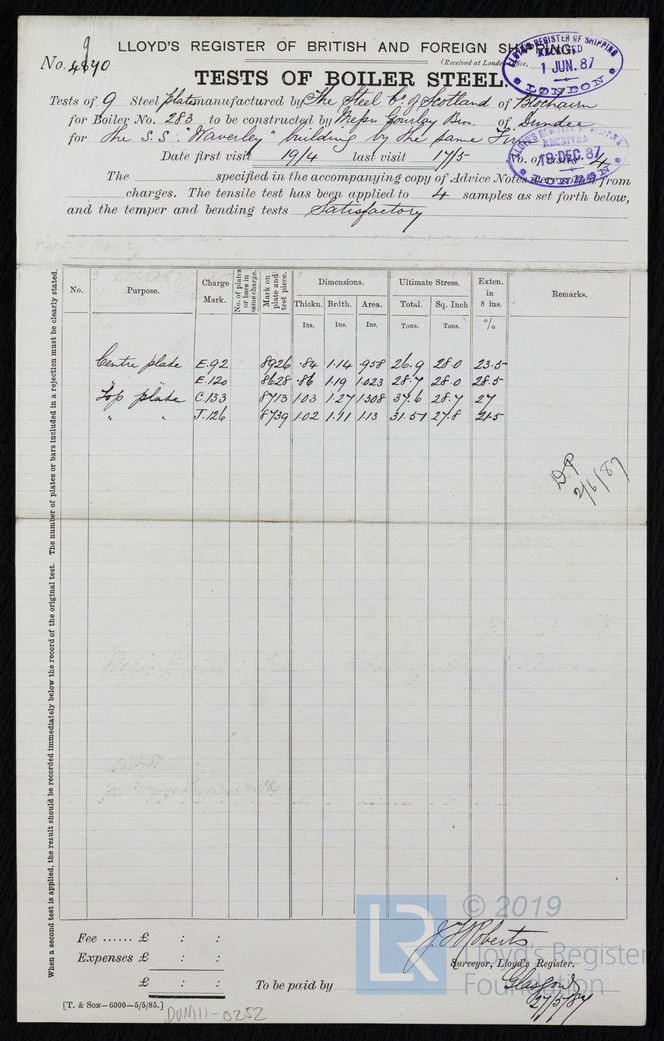 LLOYD'S REGISTER OF BRITISH AND FOREIGN SHIPPING.
No. 4640
9
(Received at London Office,
LLOYD'S REGISTER OF SHIPPING
RECEIVED
1 JUN. 87
LONDON
TESTS OF BOILER STEEL.
Tests of 9 Steel plates manufactured by The Steel Co. of Scotland of Blochairn
for Boiler No. 283 to be constructed by Messrs Gourlay Bros. of Dundee
for the S.S. "Waverley" building by the same Firm
RECEIVED
19 DEC. 87
LONDON
Date first visit 19/4 last visit 17/5 No. of visits 4
The specified in the accompanying copy of Advice Notes were from
charges. The tensile test has been applied to 4 samples as set forth below,
and the temper and bending tests Satisfactory
When a second test is applied, the result should be recorded immediately below the record of the original test. The number of plates or bars included in a rejection must be clearly stated.
No. Purpose. Charge Mark. No. of plates or bars in same charge. Mark on plate and test piece. Dimensions. Ultimate Stress. Exten. in 8 ins. Remarks.
Thickn. Brdth. Area. Total. Sq. Inch
Ins. Ins. Ins. Tons. Tons. %
Centre plate E.92 8926 .84 1.14 .958 26.9 28.0 23.5
" " E.120 8628 .86 1.19 1.023 28.7 28.0 28.5
Top plate C.133 8713 1.03 1.27 1.308 37.6 28.7 27
" " J.126 8739 1.02 1.11 1.13 31.57 27.8 21.5
DP
2/6/87
Fee ...... £ : :
Expenses £ : :
£ : :
To be paid by
J F Roberts
Surveyor, Lloyd's Register.
Glasgow
27/5/87
[T. & SON—6000—5/5/85.]
DUN111-0252
LR
© 2019
Lloyd's Register
Foundation